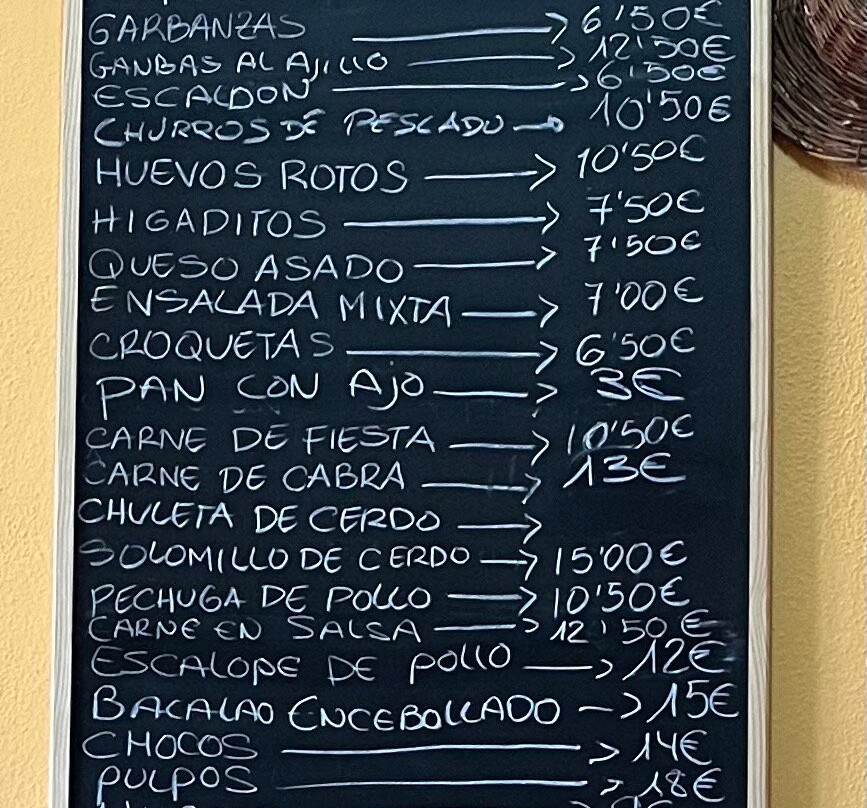 GARBANZAS → 6'50€
GANBAS AL AJILLO → 12'50€
ESCALDON → 6'50€
CHURROS DE PESCADO → 10'50€
HUEVOS ROTOS → 10'50€
HIGADITOS → 7'50€
QUESO ASADO → 7'50€
ENSALADA MIXTA → 7'00€
CROQUETAS → 6'50€
PAN CON AJO → 3€
CARNE DE FIESTA → 10'50€
CARNE DE CABRA → 13€
CHULETA DE CERDO →
SOLOMILLO DE CERDO → 15'00€
PECHUGA DE POLLO → 10'50€
CARNE EN SALSA → 12'50€
ESCALOPE DE POLLO → 12€
BACALAO ENCEBOLLADO → 15€
CHOCOS → 14€
PULPOS → 18€